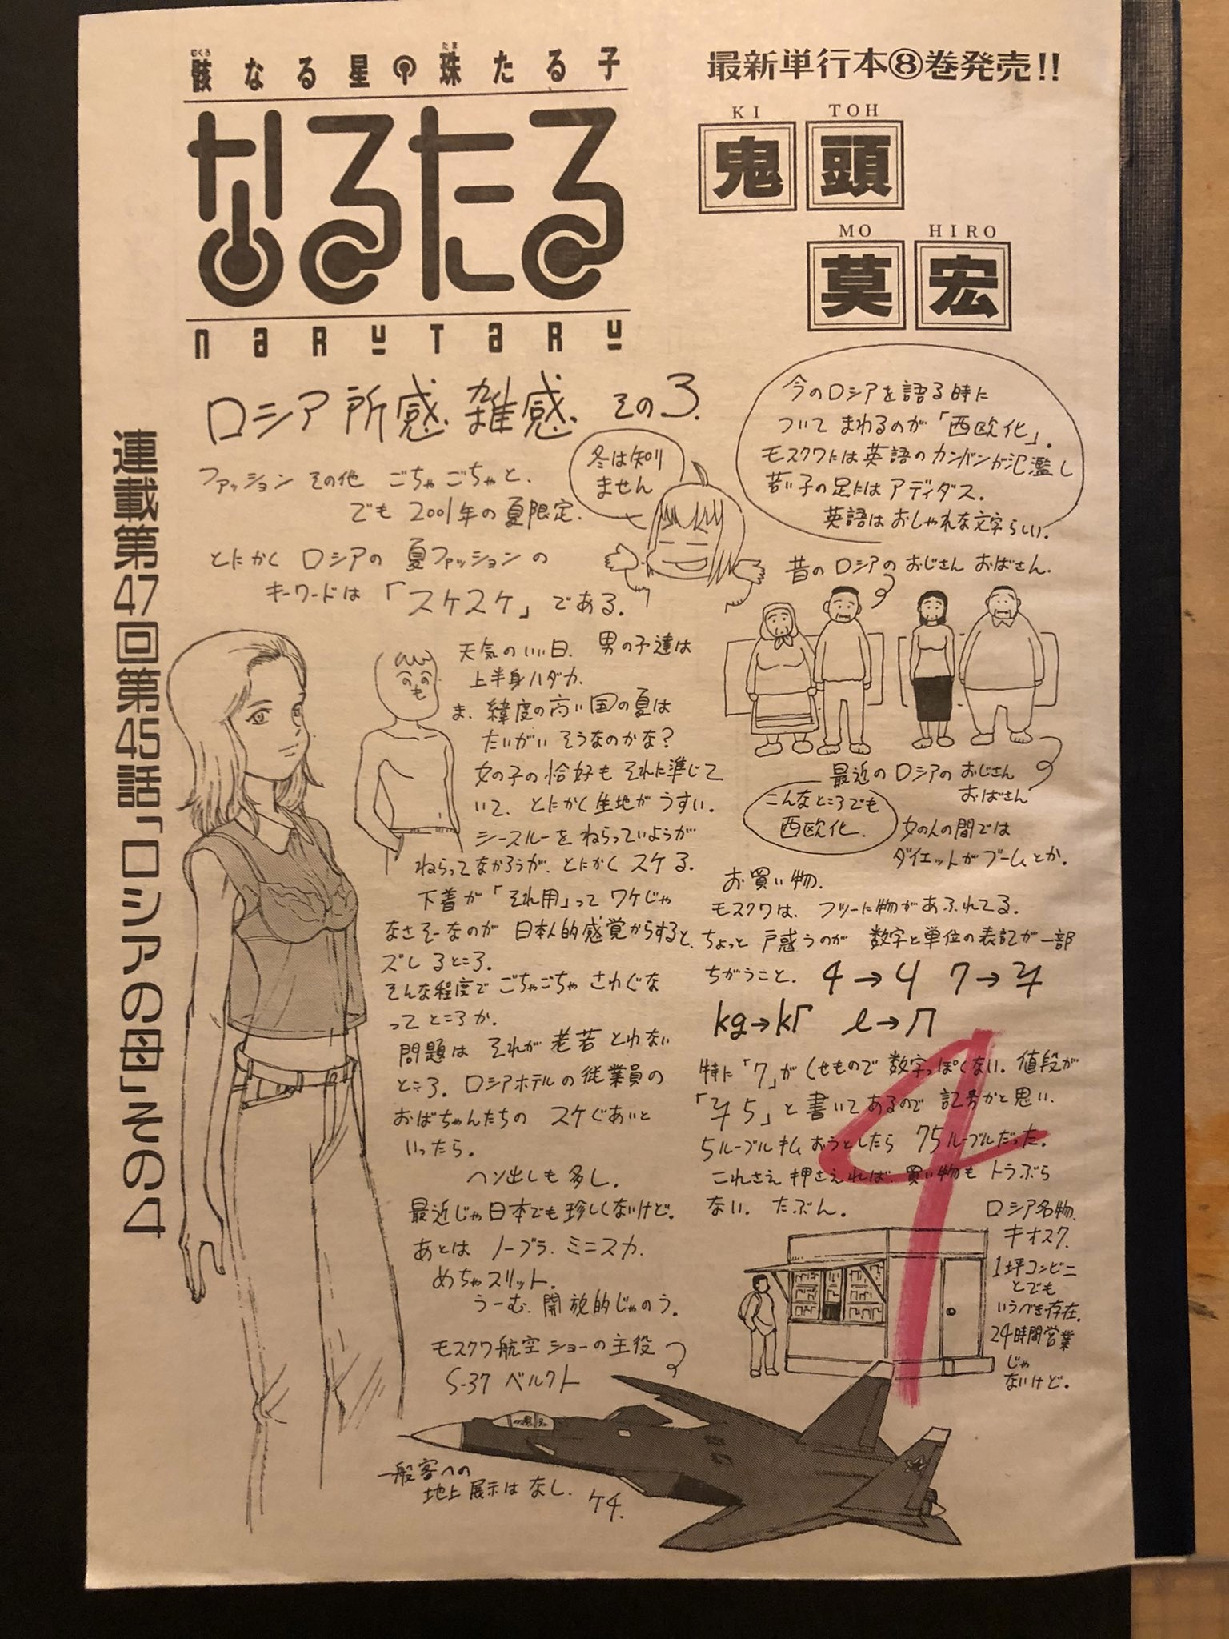 骸なる星珠たる子
むくろ
たま
なるたる
NARUTARU
最新単行本⑧巻発売!!
KI TOH
鬼頭
MO HIRO
莫宏
連載第47回第45話「ロシアの母」その4
ロシア所感.雑感.その3.
ファッションその他ごちゃごちゃと、
でも2001年の夏限定.
とにかくロシアの夏ファッションの
キーワードは「スケスケ」である.
冬は知り
ません
天気のいい日、男の子達は
上半身ハダカ.
ま、緯度の高い国の夏は
たいがいそうなのかな?
女の子の恰好もそれに準じて
いて、とにかく生地がうすい.
シースルーをねらっていようが
ねらってなかろうが、とにかくスケる.
下着が「それ用」ってワケじゃ
なさそーなのが日本人的感覚からすると、
ズレるところ.
そんな程度でごちゃごちゃさわぐな
ってところか.
問題はそれが老若とわない
ところ.ロシアホテルの従業員の
おばちゃんたちのスケぐあいと
いったら.
ヘソ出しも多し.
最近じゃ日本でも珍しくないけど.
あとはノーブラ.ミニスカ.
めちゃスリット.
うーむ、開放的じゃのう.
モスクワ航空ショーの主役
S-37 ベルクト
一般客への
地上展示はなし.ケチ.
今のロシアを語る時に
ついてまわるのが「西欧化」.
モスクワには英語のカンバンが氾濫し
若い子の足にはアディダス.
英語はおしゃれな文字らしい.
昔のロシアのおじさんおばさん.
最近のロシアのおじさん
おばさん
こんなところでも
西欧化.
女の人の間では
ダイエットがブームとか.
お買い物.
モスクワは、フツーに物があふれてる.
ちょっと戸惑うのが数字と単位の表記が一部
ちがうこと.4→Ч 7→
kg→кГ ℓ→Л
特に「7」がくせもので数字っぽくない.値段が
「75」と書いてあるので記号かと思い、
5ルーブル払おうとしたら75ルーブルだった.
これさえ押さえれば、買い物もトラぶら
ない.たぶん.
4
ロシア名物
キオスク.
1坪コンビニ
とでも
いうべき存在.
24時間営業
じゃ
ないけど.